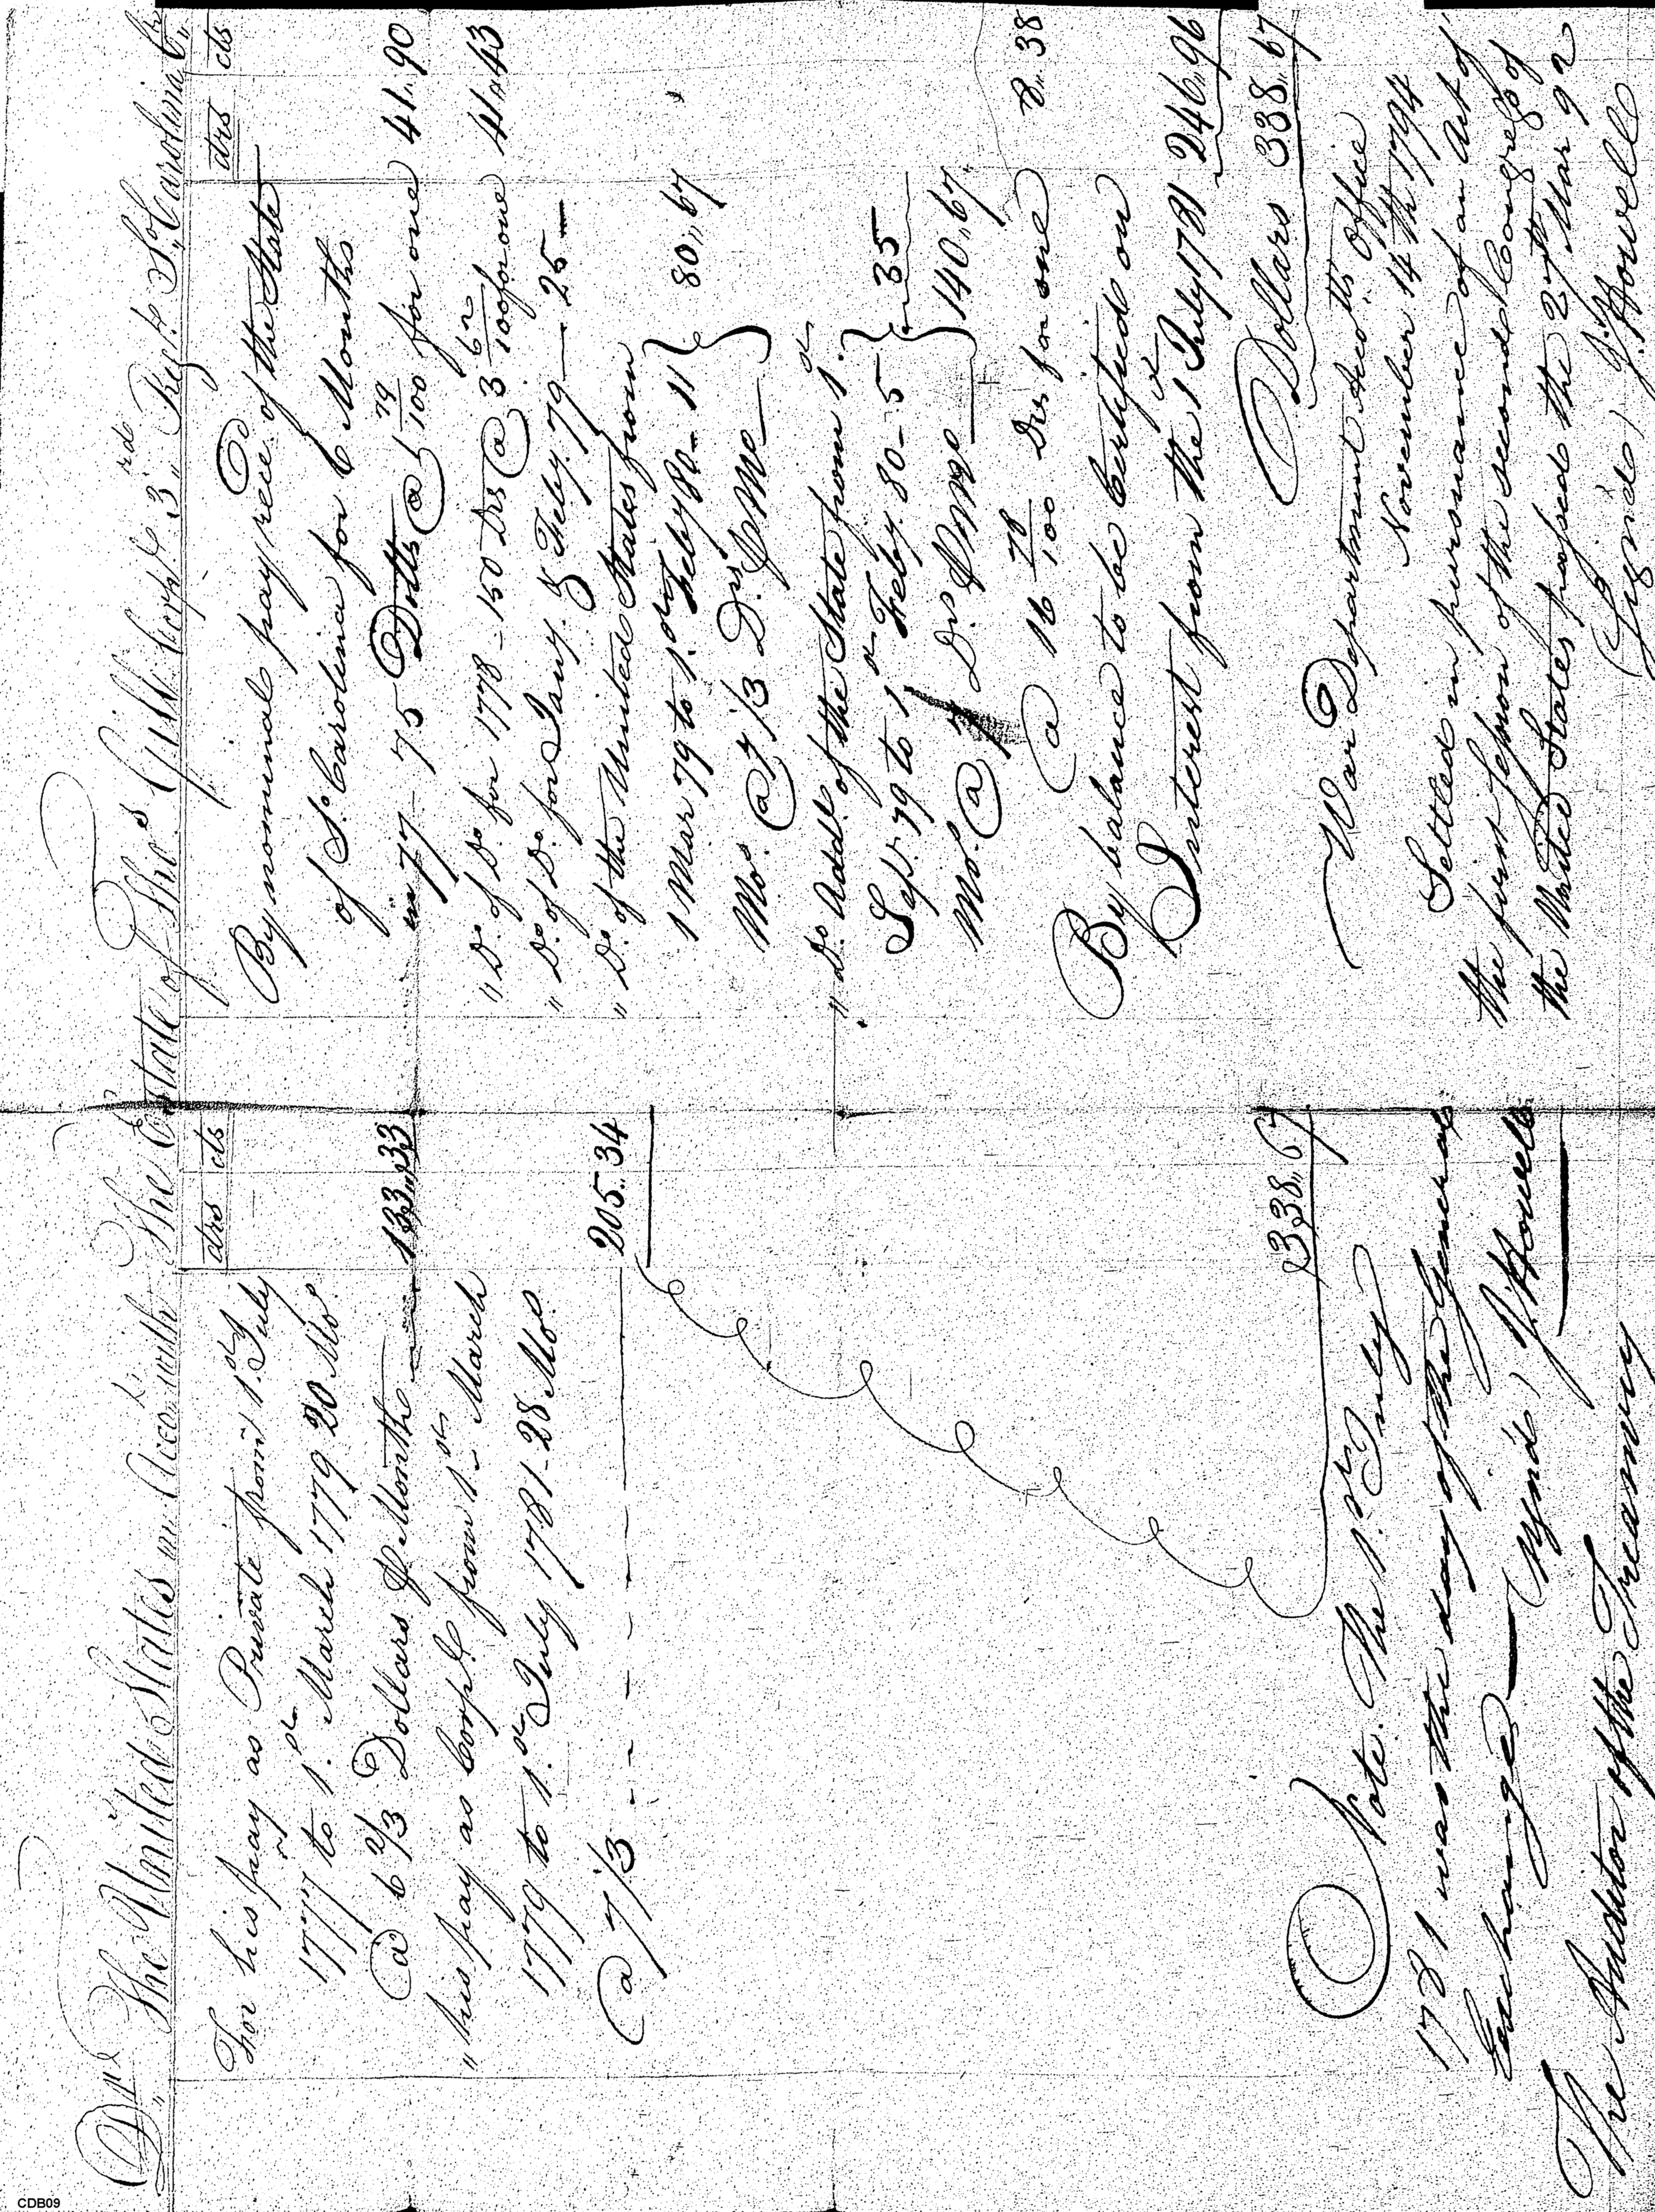 Dr,, The United States in Accot. with The Estate of Thos. Gill Corpl. 3,,rd Regt. So. Carolina Cr,,
drs cts
For his pay as Private from 1.st July
1777 to 1.st March 1779 20 Mos.
@ 6 2/3 Dollars P Month 133,,33
" his pay as Corpl. from 1.st March
1779 to 1.st July 1781-28 Mos.
@ 7 1/3 - - - - - 205..34
338,,67
Note. The 1.st July
1781 was the day of the General
Exchange
(Signd.) J. Howell
The Auditor of the Treasury
drs cts
By nominal pay rec.d of the State
of So. Carolina for 6 Months
in 77 - 75 Dolls @ 1 79/100 for one 41,,90
" Do. of Do. for 1778 - 150 Drs @ 3 62/100 for one 41,,43
" Do. of Do. for Jany. & Feby. 79 — 25 —
" Do. of the United States from
1 Mar 79 to 1.st Feby 80 - 11 } 80,,67
Mos. @ 7 1/3 Drs. P Mo —
" Do. Addl. of the State from 1.st
Sept. 79 to 1st Feby. 80 - 5 } 35
Mos. @ 7 Drs P Mo — 140,,67
@ 16 78/100 Drs for one 8,,38
By balance to be Certified on
Interest from the 1st July 1781 246,,96
Dollars 338,,67
War Department Accotts. Office
November 14th 1794
Settled in pursuance of an Act of
the first Session of the second Congress of
the United States passed the 27th Mar 92
(Signd.) J. Howell